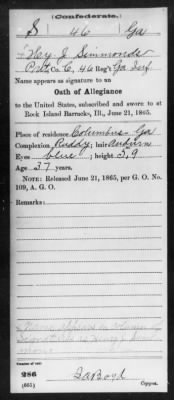 (Confederate.)
S 46 Ga
Hey J Simmonds
Pvt Co. C, 46 Reg't Ga Inf.
Name appears as signature to an
Oath of Allegiance
to the United States, subscribed and sworn to at
Rock Island Barracks, Ill., June 21, 1865.
Place of residence Columbus Ga
Complexion Ruddy; hair auburn
Eyes blue; height 5.9
Age 37 years.
NOTE: Released June 21, 1865, per G. O. No.
109, A. G. O.
Remarks:
Number of roll:
286
(665) Boyd Copyist.